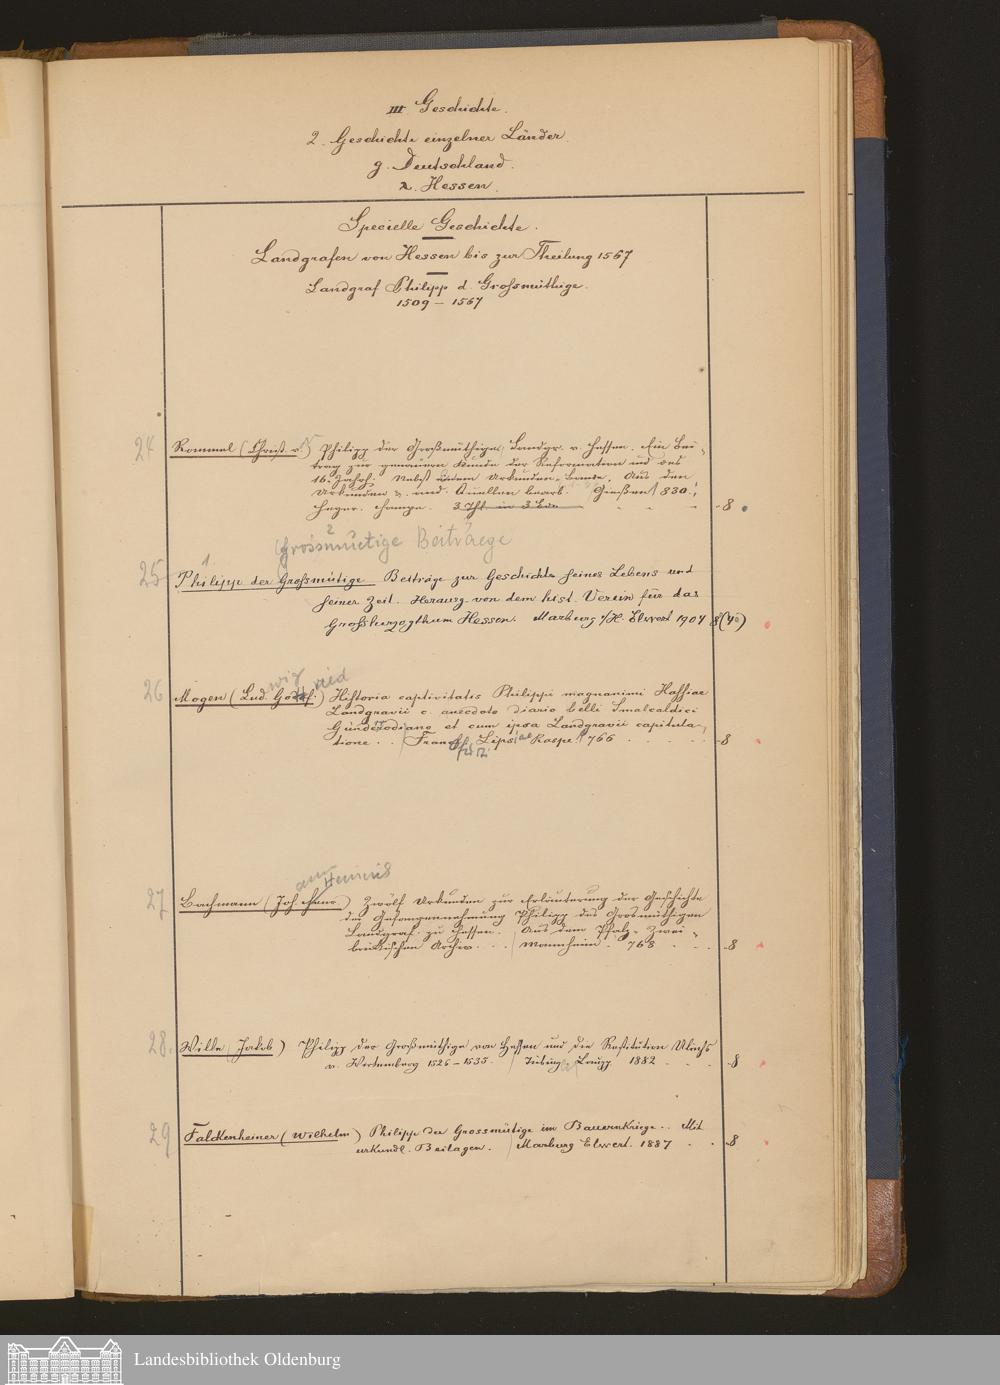 III. Geschichte.
2. Geschichte einzelner Länder.
g. Deutschland.
Hessen.
Specielle Geschichte.
Landgrafen von Hessen bis zur Theilung 1567
Landgraf Philipp d. Großmüthige.
1509 – 1567
24 Rommel (Christ. v.) Philipp der Großmüthige, Landgr. v. Hessen. Ein Bei-
trag zur genauern Kunde der Reformation und des
16. Jahrh. Nebst Urkunden-Bande. Aus den
Urkunden u. and. Quellen bearb. Gießen 830.
Heyer. 3 Thl. in 3 8
2
Grossmuetige Beitraege
1.
25 Philipp der Großmütige Beiträge zur Geschichte seines Lebens und
seiner Zeit. Herausg. von dem hist. Verein für das
Großherzogthum Hessen. Marburg a/H. Elwert 1904 8 (40)
wig ried
26 Mogen (Lud. Gottf.) Historia captivitatis Philippi magnanimi Hassiae
Landgravii c. anecdoto diario belli Smalcaldici
Günderodiano et cum ipsa Landgravii capitula-
tione . . Francf. Lipsiae Raspe 766 8
ann Heinrich
27 Bachmann (Joh. Henr.) Zwölf Urkunden zur Erläuterung der Geschichte
der Gefangennehmung Philipp des Grosmüthigen
Landgraf. zu Hessen. Aus dem Pfalz-Zwei-
brückischen Archiv. Mannheim. 768 8
28. Wille (Jakob) Philipp der Großmüthige von Hessen und die Restitution Ulrichs
v. Wirtemberg 1526 – 1535. Tübing Laupp 1882 8
29 Falckenheiner (Wilhelm) Philipp der Grossmütige im Bauernkriege. . Mit
urkundl. Beilagen. Marburg Elwert. 1887 8
Landesbibliothek Oldenburg